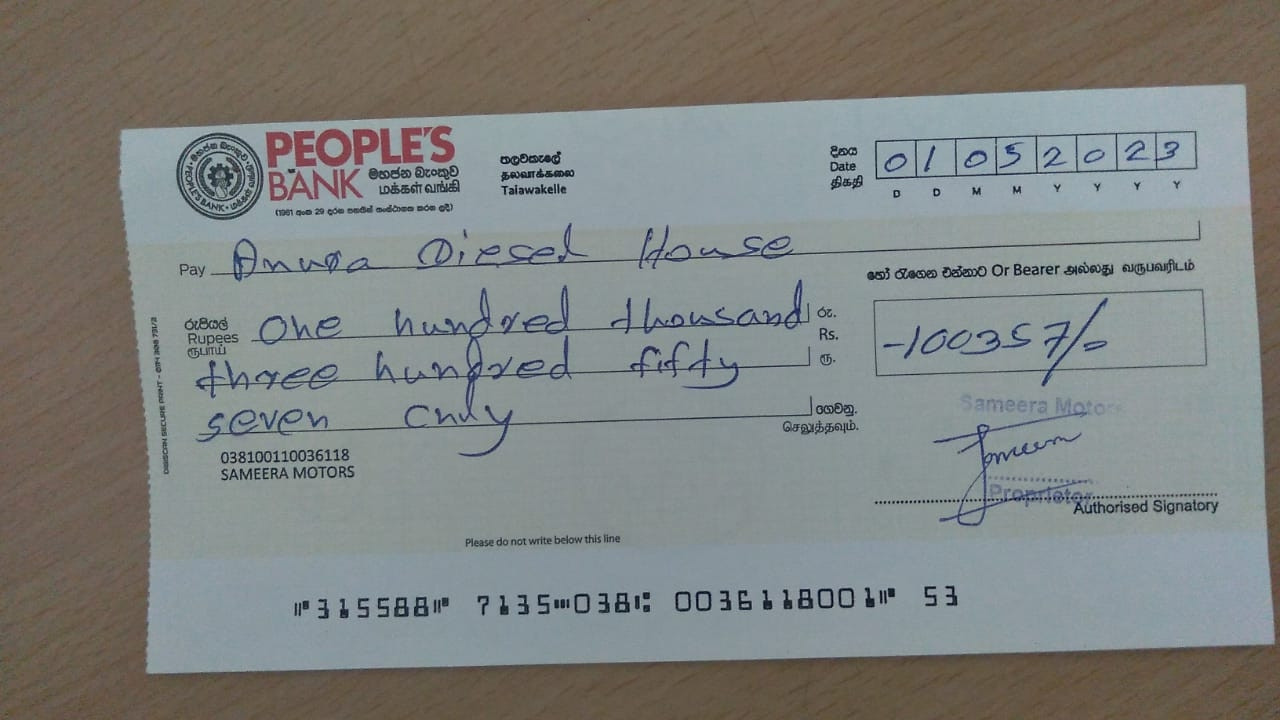 PEOPLE'S
BANK මහජන බැංකුව
மக்கள் வங்கி
(1961 අංක 29 දරන පනතින් සංස්ථාගත කරන ලදී)
තලවකැලේ
தலவாக்கலை
Talawakelle
දිනය
Date
திகதி
01052023
D D M M Y Y Y Y
Pay Anura Diesel House
හෝ රැගෙන එන්නාට Or Bearer அல்லது வருபவரிடம்
රුපියල්
Rupees
ரூபாய்
One hundred thousand
three hundred fifty
seven only
රු.
Rs.
ரூ.
-100357/-
ගෙවනු.
செலுத்தவும்.
038100110036118
SAMEERA MOTORS
Sameera Motors
Proprietor
Authorised Signatory
Please do not write below this line
⑈315588⑈ 7135⑉038⑆ 0036118001⑈ 53